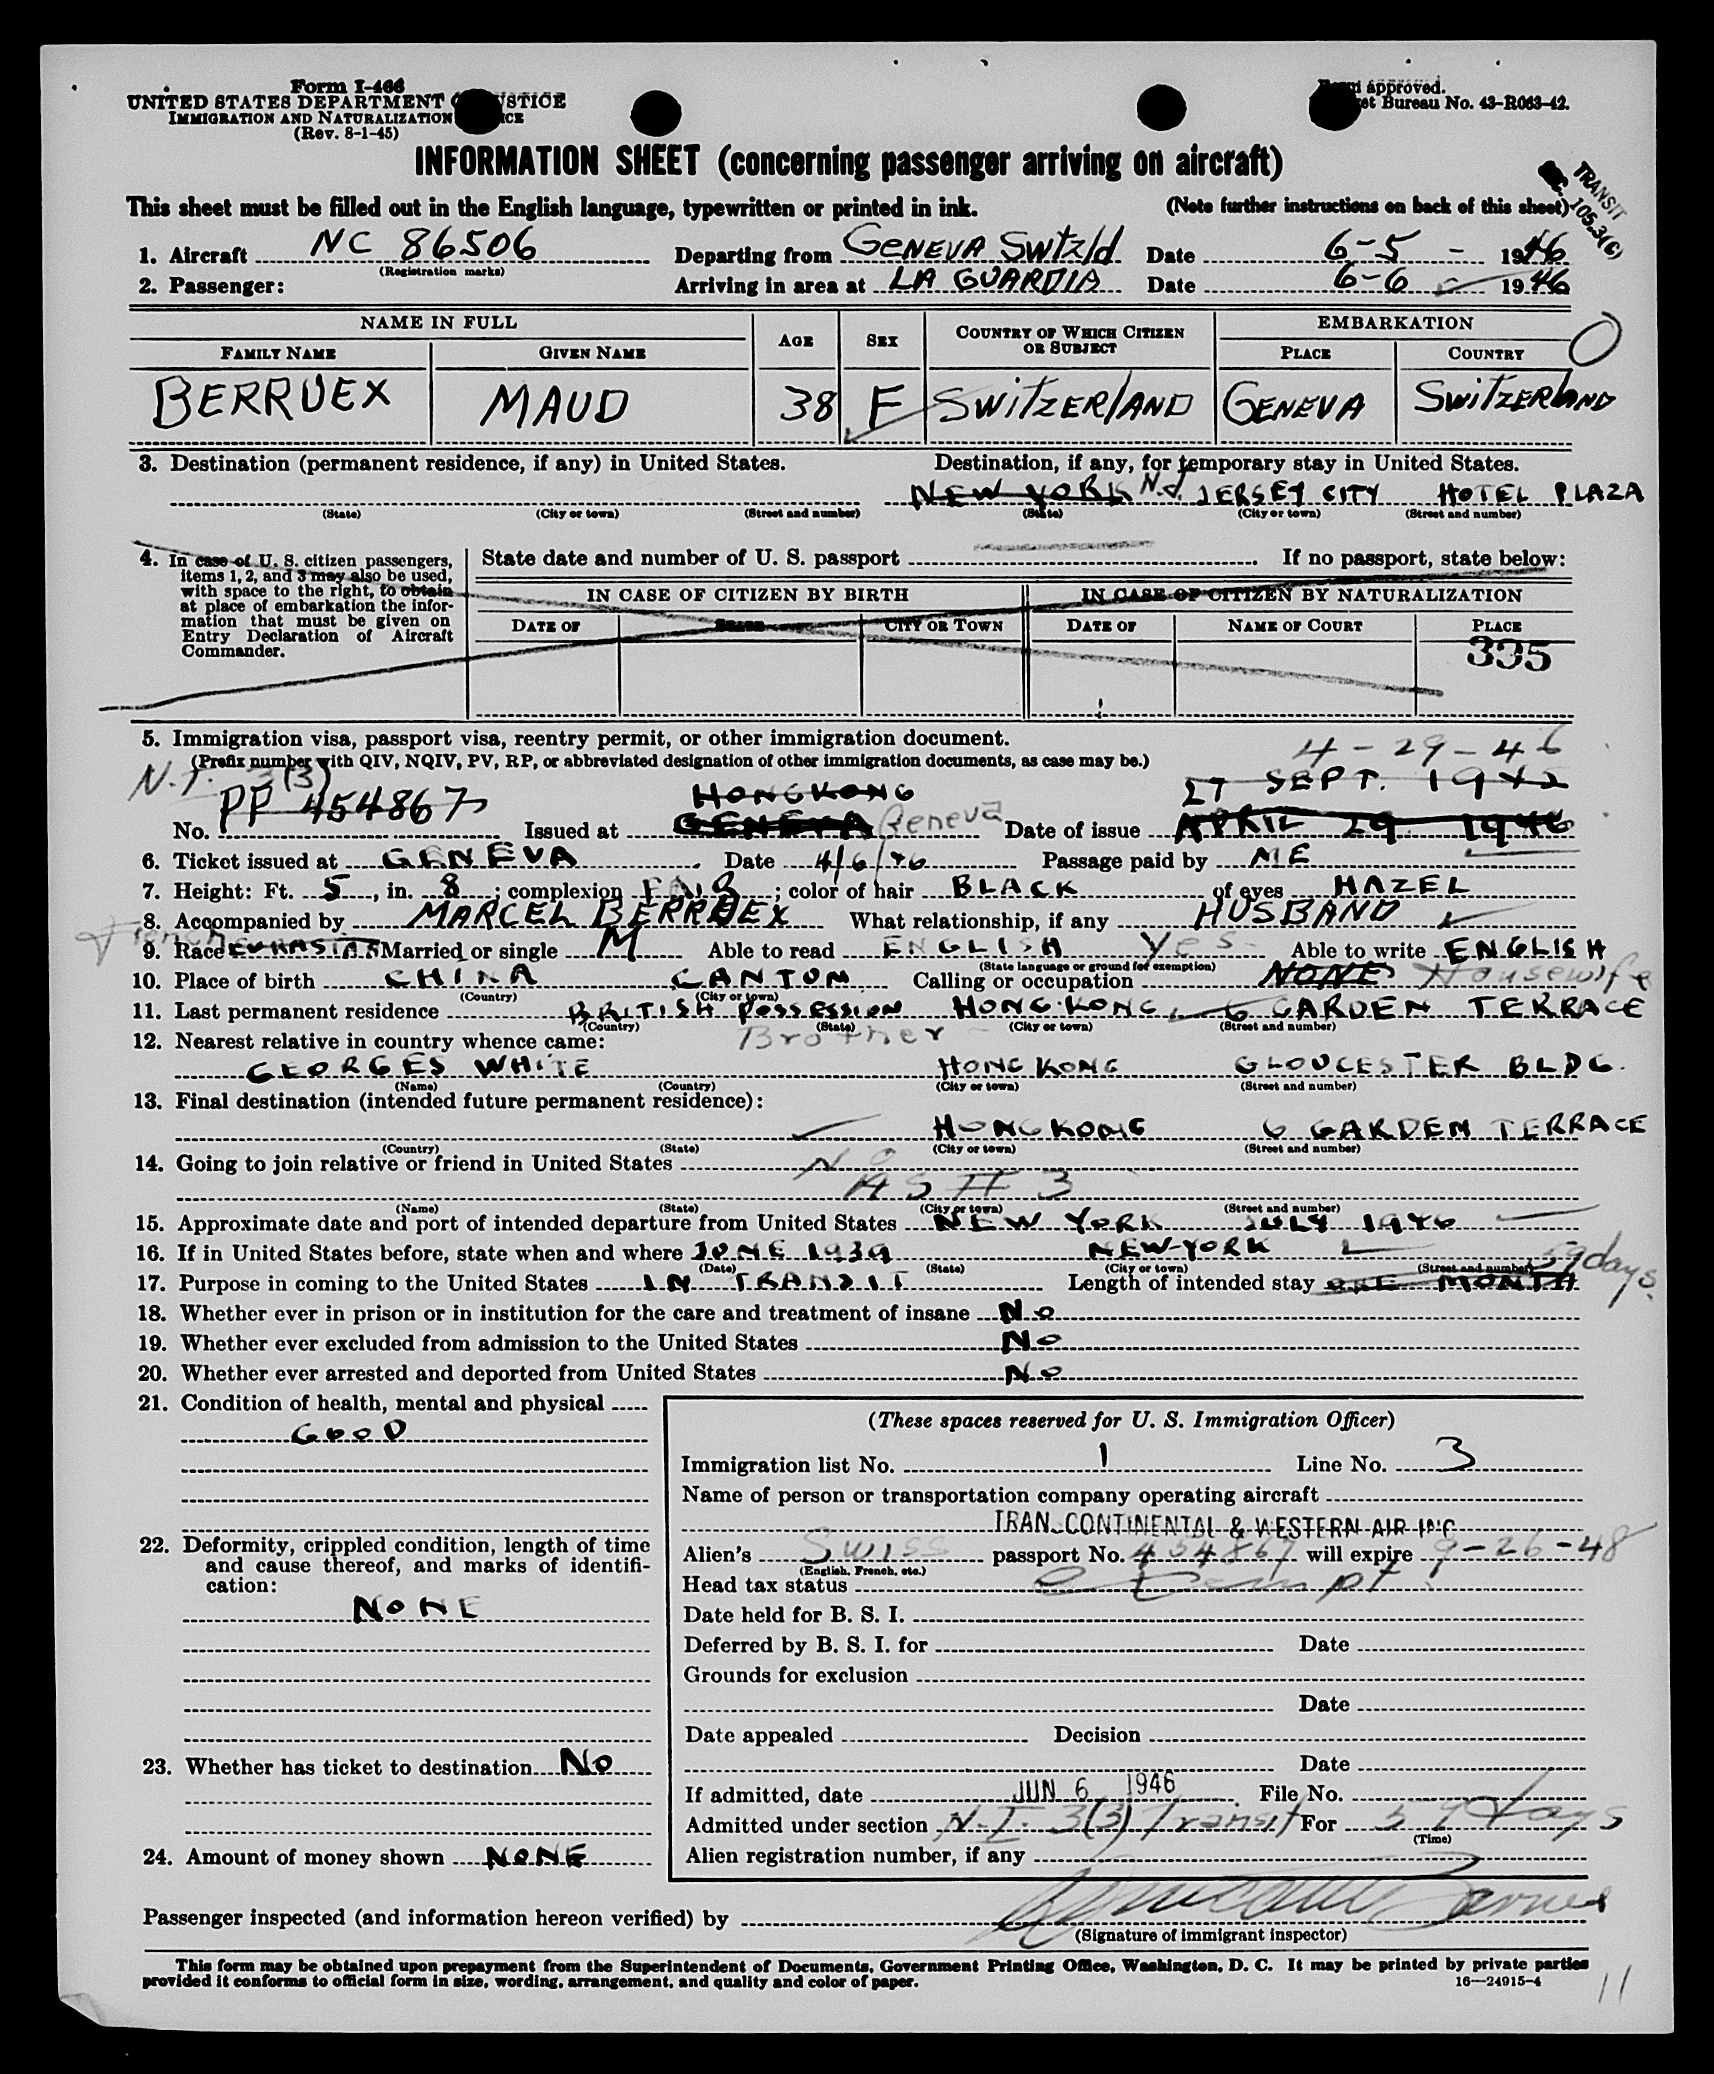 Form I-466
UNITED STATES DEPARTMENT STICE
IMMIGRATION AND NATURALIZATION ICE
(Rev. 8-1-45)
approved.
et Bureau No. 43-R063-42.
INFORMATION SHEET (concerning passenger arriving on aircraft)
TRANSIT
105.3(G)
This sheet must be filled out in the English language, typewritten or printed in ink. (Note further instructions on back of this sheet)
1. Aircraft NC 86506 Departing from GENEVA SWtzld Date 6-5- 1946
(Registration marks)
2. Passenger: Arriving in area at LA GUARDIA Date 6-6 1946
NAME IN FULL AGE SEX COUNTRY OF WHICH CITIZEN OR SUBJECT EMBARKATION
FAMILY NAME GIVEN NAME PLACE COUNTRY
BERRUEX MAUD 38 F SWITZERLAND GENEVA SWITZERLAND
3. Destination (permanent residence, if any) in United States. Destination, if any, for temporary stay in United States.
NEW YORK N.J. JERSEY CITY HOTEL PLAZA
(State) (City or town) (Street and number) (State) (City or town) (Street and number)
4. In case of U. S. citizen passengers, items 1, 2, and 3 may also be used, with space to the right, to obtain at place of embarkation the information that must be given on Entry Declaration of Aircraft Commander.
State date and number of U. S. passport . If no passport, state below:
IN CASE OF CITIZEN BY BIRTH IN CASE OF CITIZEN BY NATURALIZATION
DATE OF STATE CITY OR TOWN DATE OF NAME OF COURT PLACE
335
5. Immigration visa, passport visa, reentry permit, or other immigration document.
4-29-46
(Prefix number with QIV, NQIV, PV, RP, or abbreviated designation of other immigration documents, as case may be.)
N.I. 3(3) HONGKONG 27 SEPT. 1942
No. PP 454867 Issued at GENEVA Geneva Date of issue APRIL 29 1946
6. Ticket issued at GENEVA Date 4/6/46 Passage paid by ME
7. Height: Ft. 5, in. 8; complexion FAIR; color of hair BLACK of eyes HAZEL
8. Accompanied by MARCEL BERRUEX What relationship, if any HUSBAND
French
9. Race EURASIAN Married or single M Able to read ENGLISH Yes Able to write ENGLISH
(State language or ground for exemption)
10. Place of birth CHINA CANTON Calling or occupation NONE Housewife
(Country) (City or town)
11. Last permanent residence BRITISH POSSESSION HONG-KONG, 6 GARDEN TERRACE
(Country) (State) (City or town) (Street and number)
12. Nearest relative in country whence came: Brother
GEORGES WHITE HONG KONG GLOUCESTER BLDG.
(Name) (Country) (City or town) (Street and number)
13. Final destination (intended future permanent residence):
HONGKONG 6 GARDEN TERRACE
(Country) (State) (City or town) (Street and number)
14. Going to join relative or friend in United States No
AS # 3
(Name) (State) (City or town) (Street and number)
15. Approximate date and port of intended departure from United States NEW YORK JULY 1946
16. If in United States before, state when and where JUNE 1939 NEW-YORK
(Date) (State) (City or town) (Street and number)
59 days.
17. Purpose in coming to the United States IN TRANSIT Length of intended stay ONE MONTH
18. Whether ever in prison or in institution for the care and treatment of insane No
19. Whether ever excluded from admission to the United States No
20. Whether ever arrested and deported from United States No
21. Condition of health, mental and physical
GOOD
22. Deformity, crippled condition, length of time and cause thereof, and marks of identification:
NONE
23. Whether has ticket to destination No
24. Amount of money shown NONE
(These spaces reserved for U. S. Immigration Officer)
Immigration list No. 1 Line No. 3
Name of person or transportation company operating aircraft
TRAN CONTINENTAL & WESTERN AIR INC
Alien's Swiss passport No. 454867 will expire 9-26-48
(English, French, etc.)
Head tax status exempt
Date held for B. S. I.
Deferred by B. S. I. for Date
Grounds for exclusion
Date
Date appealed Decision
Date
If admitted, date JUN 6 1946 File No.
Admitted under section N.I. 3(3) Transit For 59 days
(Time)
Alien registration number, if any
Passenger inspected (and information hereon verified) by
(Signature of immigrant inspector)
This form may be obtained upon prepayment from the Superintendent of Documents, Government Printing Office, Washington, D. C. It may be printed by private parties
provided it conforms to official form in size, wording, arrangement, and quality and color of paper. 16—24915-4
11